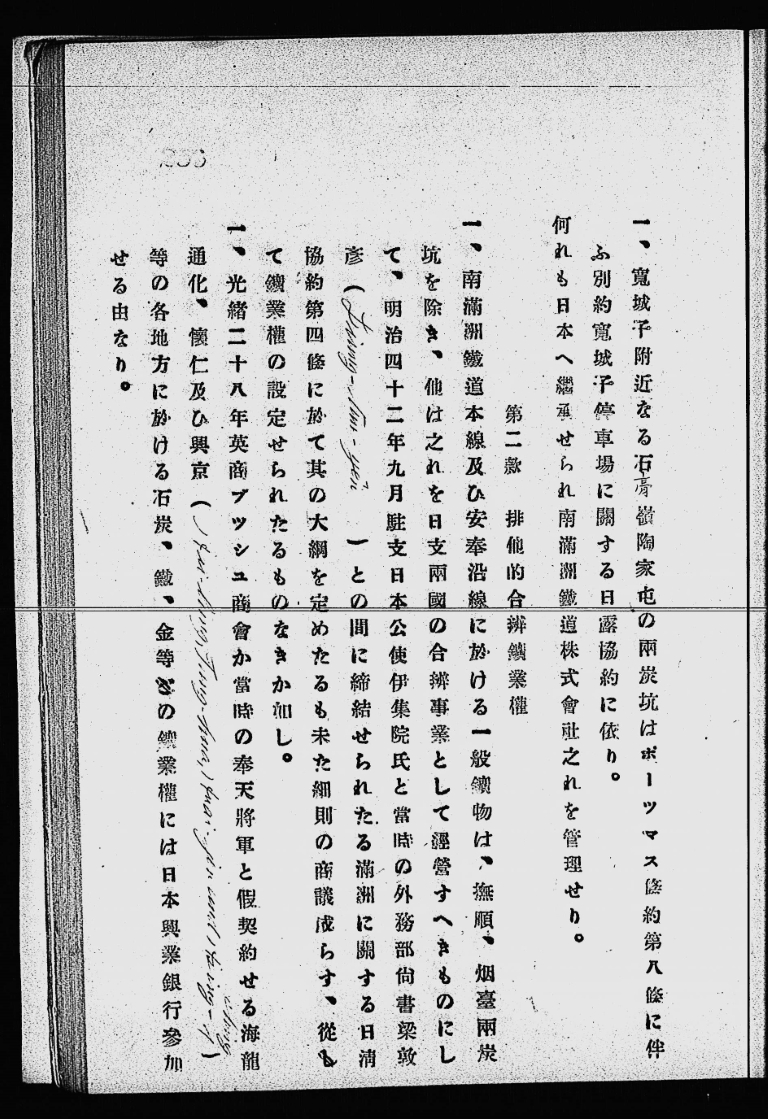 一、寬城子附近なる石膏嶺陶家屯の兩炭坑はポーツマス條約第八條に伴
ふ別約寬城子停車場に關する日露協約に依り。
何れも日本へ繼承せられ南滿洲鐵道株式會社之れを管理せり。
第二款　排他的合辨鑛業權
一、南滿洲鐵道本線及ひ安奉沿線に於ける一般鑛物は、撫順、烟臺兩炭
坑を除き、他は之れを日支兩國の合辨事業として經營すへきものにし
て、明治四十二年九月駐支日本公使伊集院氏と當時の外務部尙書梁敦
彥（Liang-tun-yen　）との間に締結せられたる滿洲に關する日淸
協約第四條に於て其の大綱を定めたるも未た細則の商議成らす、從も
て鑛業權の設定せられたるものなきか如し。
一、光緒二十八年英商ブツシユ商會か當時の奉天將軍と假契約せる海龍
通化、懷仁及ひ興京（Hai-lung, Tung-hua, Huai-jen and Hsing-ching）
等の各地方に於ける石炭、鐵、金等の鑛業權には日本興業銀行參加
せる由なり。